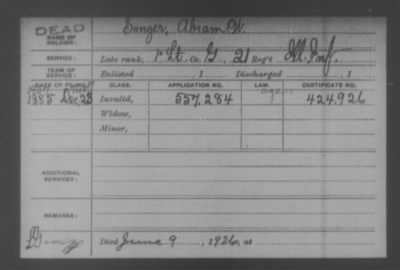 DEAD
NAME OF SOLDIER: Songer, Abram W.
SERVICE: Late rank, 1st Lt, Co. G, 21 Reg't Ill. Inf.
TERM OF SERVICE: Enlisted , 1 Discharged , 1
DATE OF FILING. CLASS. APPLICATION NO. LAW. CERTIFICATE NO.
1885 Dec 23 Invalid, 557,284 424,926
Widow,
Minor,
ADDITIONAL SERVICES:
REMARKS:
Died June 9, 1926, at